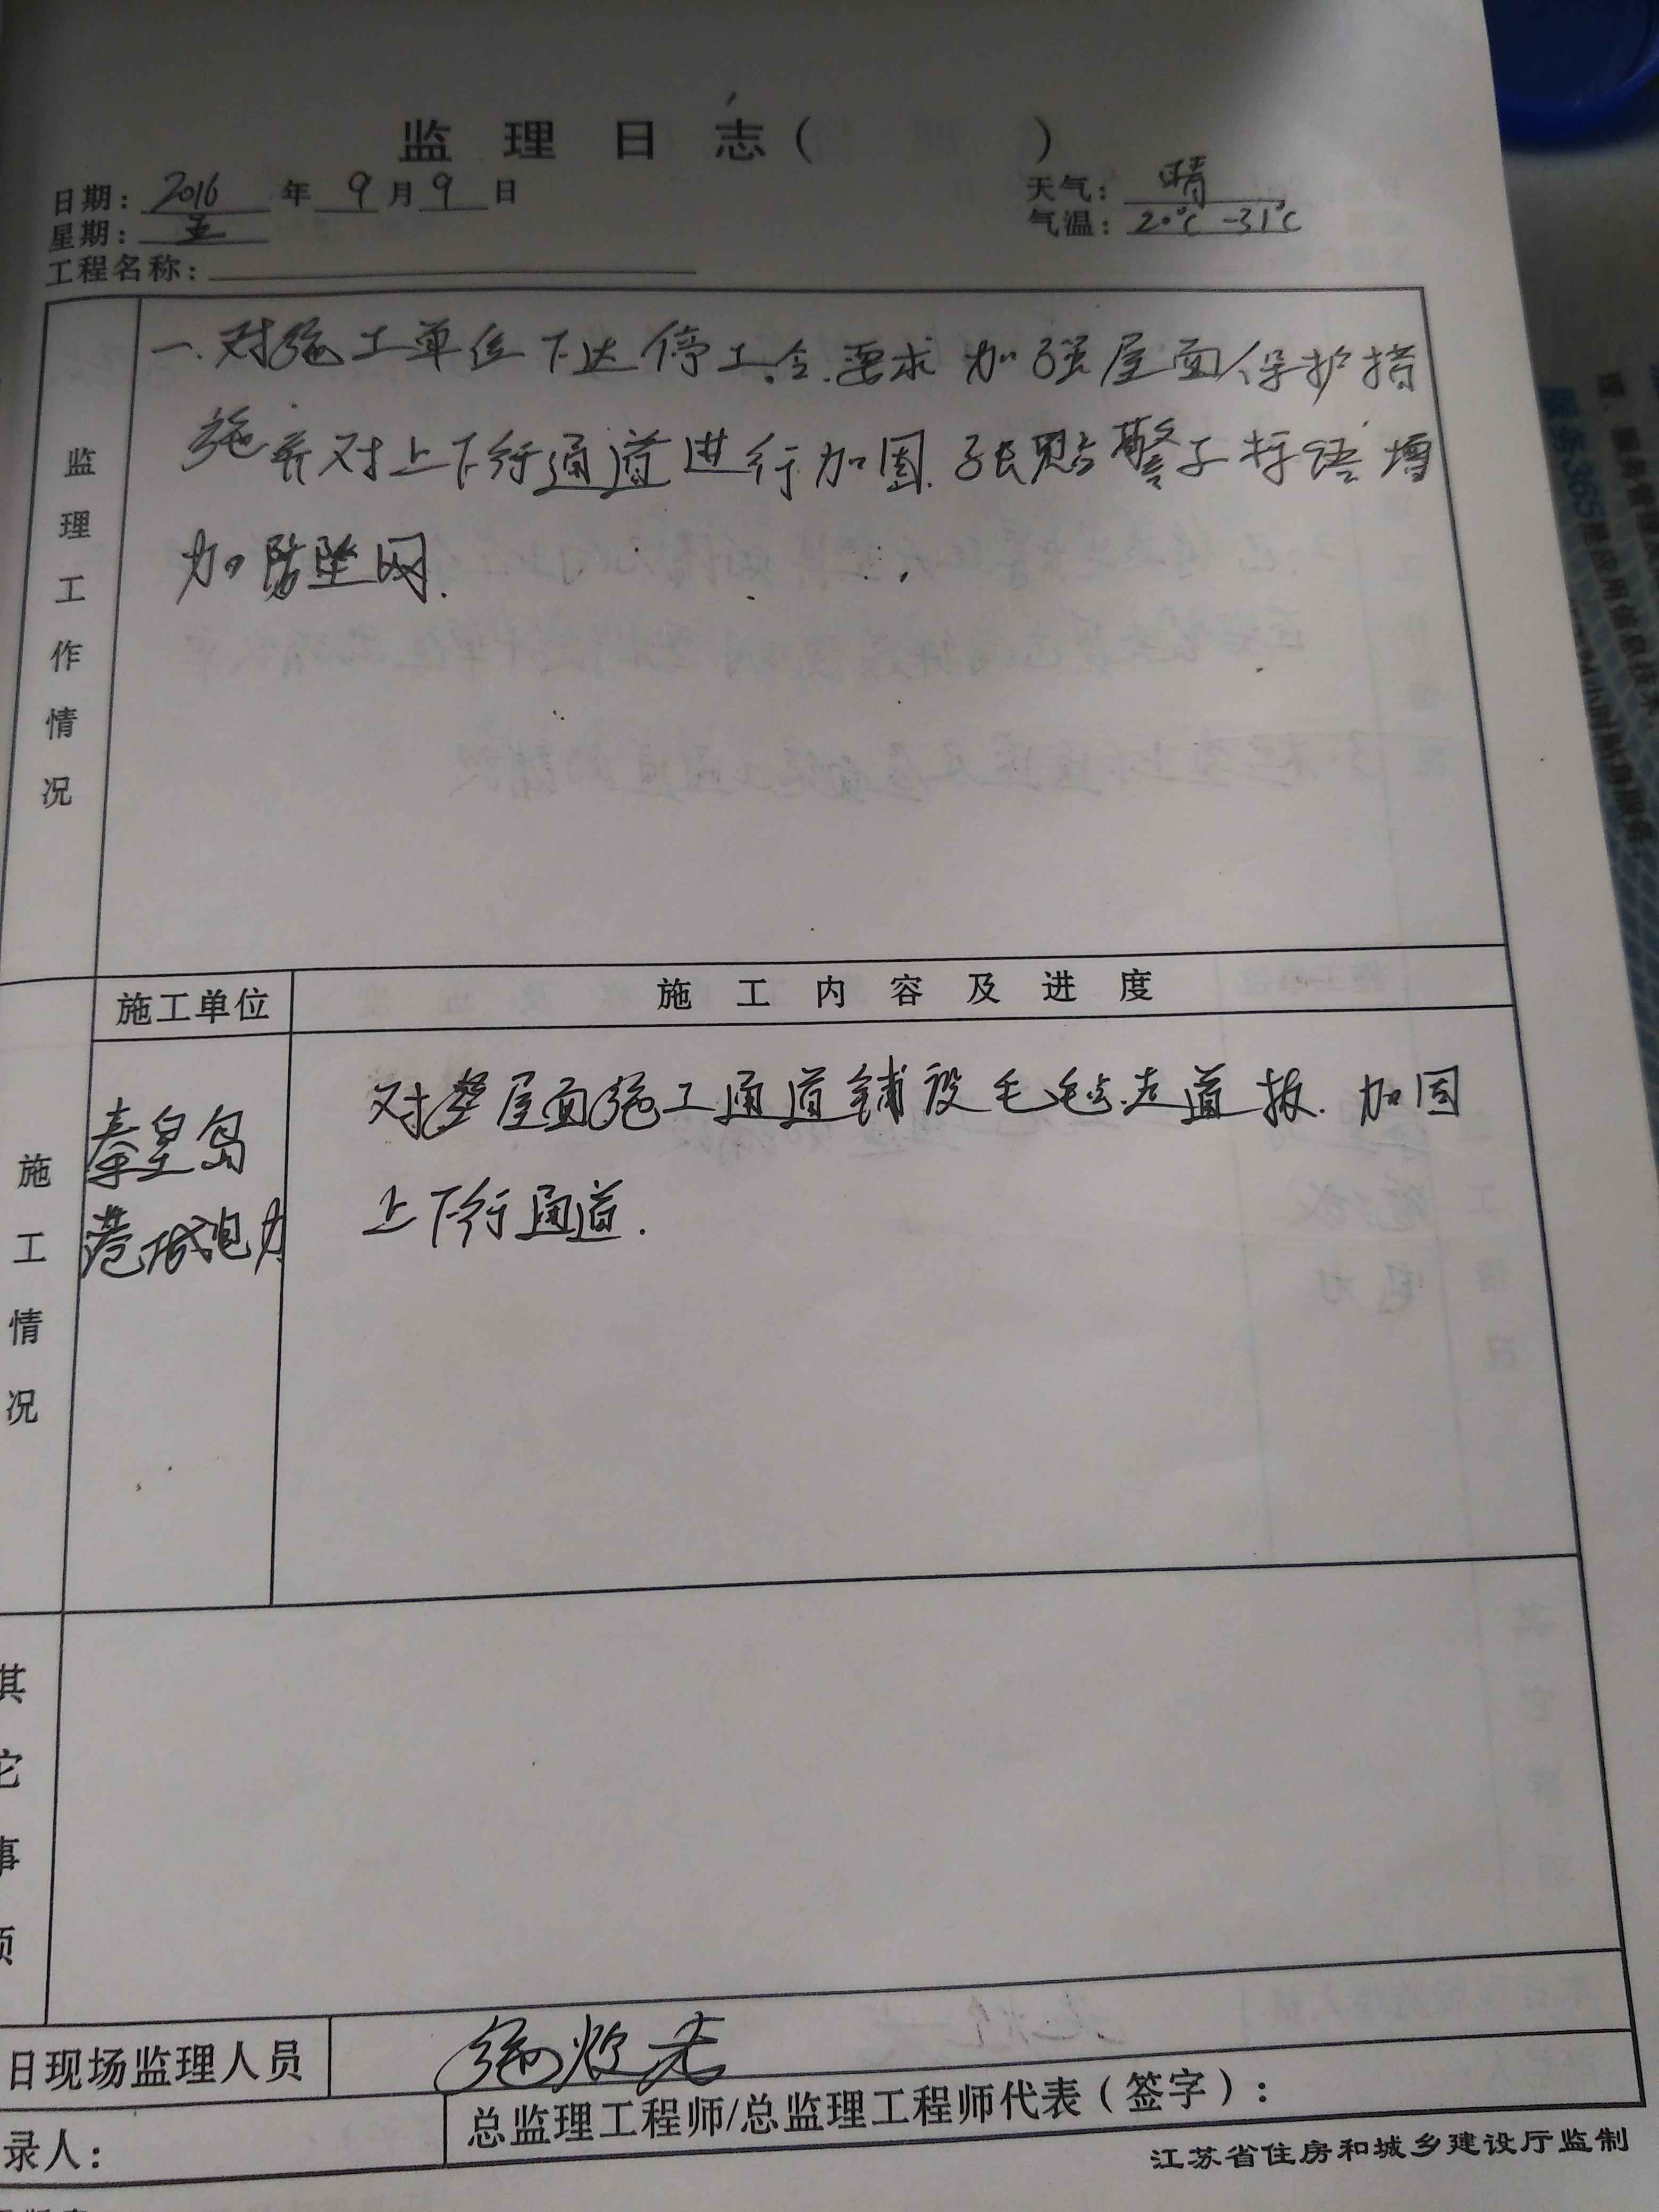 监理日志（ ）
日期：2016年9月9日
天气：晴
星期：五
气温：20℃-31℃
工程名称：
监理工作情况
一.对施工单位下达停工令.要求加强屋面保护措
施并对上下行通道进行加固.张贴警示标语增
加防坠网.
施工单位
施工内容及进度
施工情况
秦皇岛
港城电力
对整屋面施工通道铺设毛毛走道板.加固
上下行通道.
其它事项
日现场监理人员
录人：
总监理工程师/总监理工程师代表（签字）：
江苏省住房和城乡建设厅监制
服务365